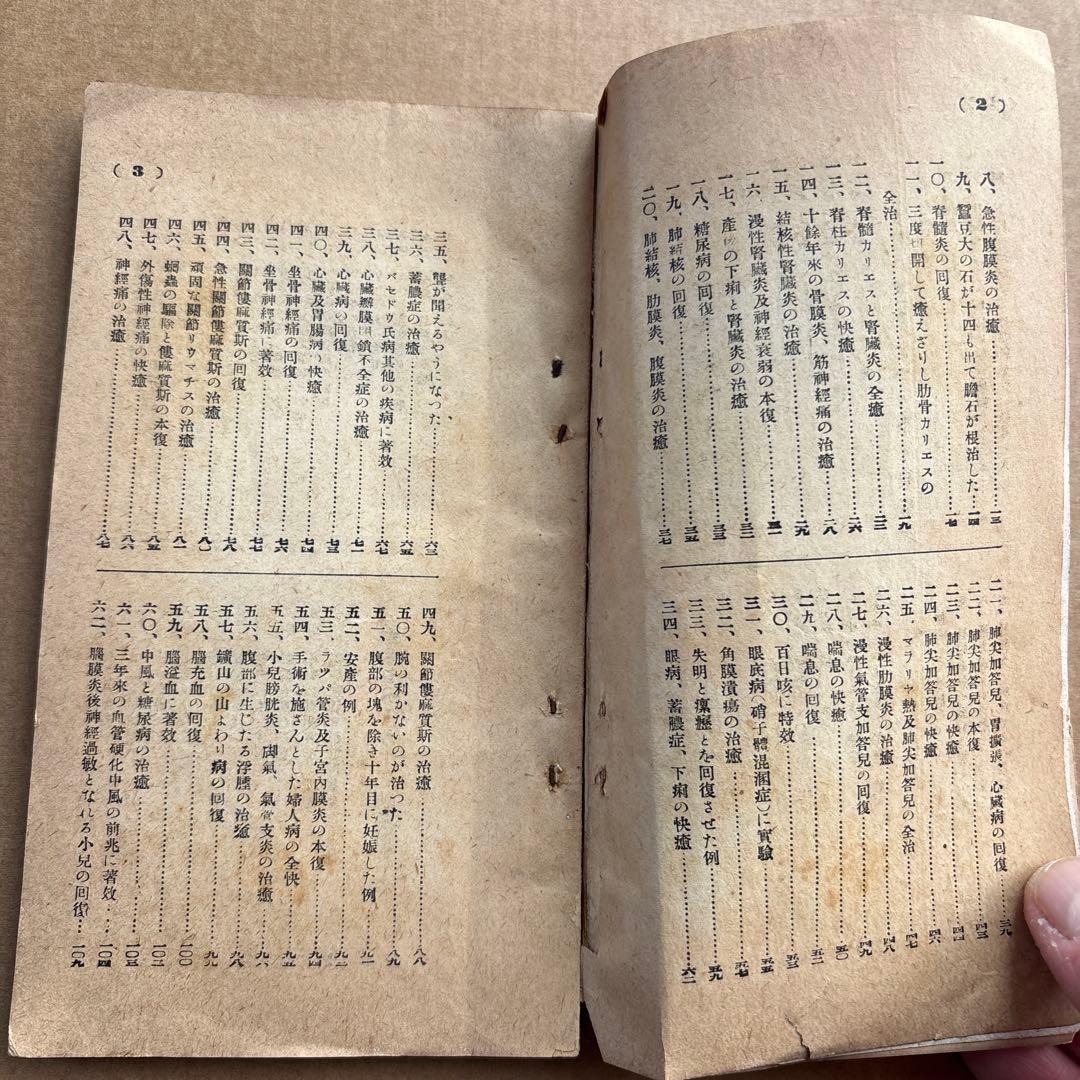 ( 2 )
八、急性腹膜炎の治癒…………一三
九、蠶豆大の石が十四も出て膽石が根治した…一四
一〇、脊髓炎の回復…………一七
一一、三度切開して癒えざりし肋骨カリエスの
全治…………一九
一二、脊髓カリエスと腎臟炎の全癒…………二二
一三、脊柱カリエスの快癒…………二六
一四、十餘年來の骨膜炎、筋神經痛の治癒…二八
一五、結核性腎臟炎の治癒…………二九
一六、漫性腎臟炎及神經衰弱の本復…………三一
一七、産後の下痢と腎臟炎の治癒…………三二
一八、糖尿病の回復…………三三
一九、肺結核の回復…………三五
二〇、肺結核、肋膜炎、腹膜炎の治癒…………三七
二一、肺尖加答兒、胃擴張、心臟病の回復…三九
二二、肺尖加答兒の本復…………四三
二三、肺尖加答兒の快癒…………四四
二四、肺尖加答兒の快癒…………四六
二五、マラリヤ熱及肺尖加答兒の全治…………四七
二六、漫性肋膜炎の治癒…………四八
二七、漫性氣管支加答兒の回復…………四九
二八、喘息の快癒…………五〇
二九、喘息の回復…………五二
三〇、百日咳に特效…………五三
三一、眼底病(硝子體混濁症)に實驗…………五五
三二、角膜潰瘍の治癒…………五七
三三、失明と瘰癧とを回復させた例…………五九
三四、眼病、蓄膿症、下痢の快癒…………六二
( 3 )
三五、聾が聞えるやうになつた…………六三
三六、蓄膿症の治癒…………六五
三七、バセドウ氏病其他の疾病に著效…………六七
三八、心臟瓣膜閉鎖不全症の治癒…………七一
三九、心臟病の回復…………七二
四〇、心臟及胃腸病の快癒…………七四
四一、坐骨神經痛の回復…………七六
四二、坐骨神經痛に著效…………七七
四三、關節僂麻質斯の回復…………七七
四四、急性關節僂麻質斯の治癒…………七八
四五、頑固な關節リウマチスの治癒…………八〇
四六、蛔蟲の驅除と僂麻質斯の本復…………八一
四七、外傷性神經痛の快癒…………八五
四八、神經痛の治癒…………八七
四九、關節僂麻質斯の治癒…………八八
五〇、腕の利かないのが治つた…………八九
五一、腹部の塊を除き十年目に妊娠した例…九一
五二、安産の例…………九二
五三、ラツパ管炎及子宮內膜炎の本復…………九四
五四、手術を施さんとした婦人病の全快…………九五
五五、小兒膀胱炎、脚氣、氣管支炎の治癒…九六
五六、腹部に生じたる浮腫の治癒…………九八
五七、鑛山の山よわり病の回復…………九九
五八、腦充血の回復…………一〇〇
五九、腦溢血に著效…………一〇二
六〇、中風と糖尿病の治癒…………一〇三
六一、三年來の血管硬化中風の前兆に著效…一〇四
六二、腦膜炎後神經過敏となれる小兒の回復…一〇九